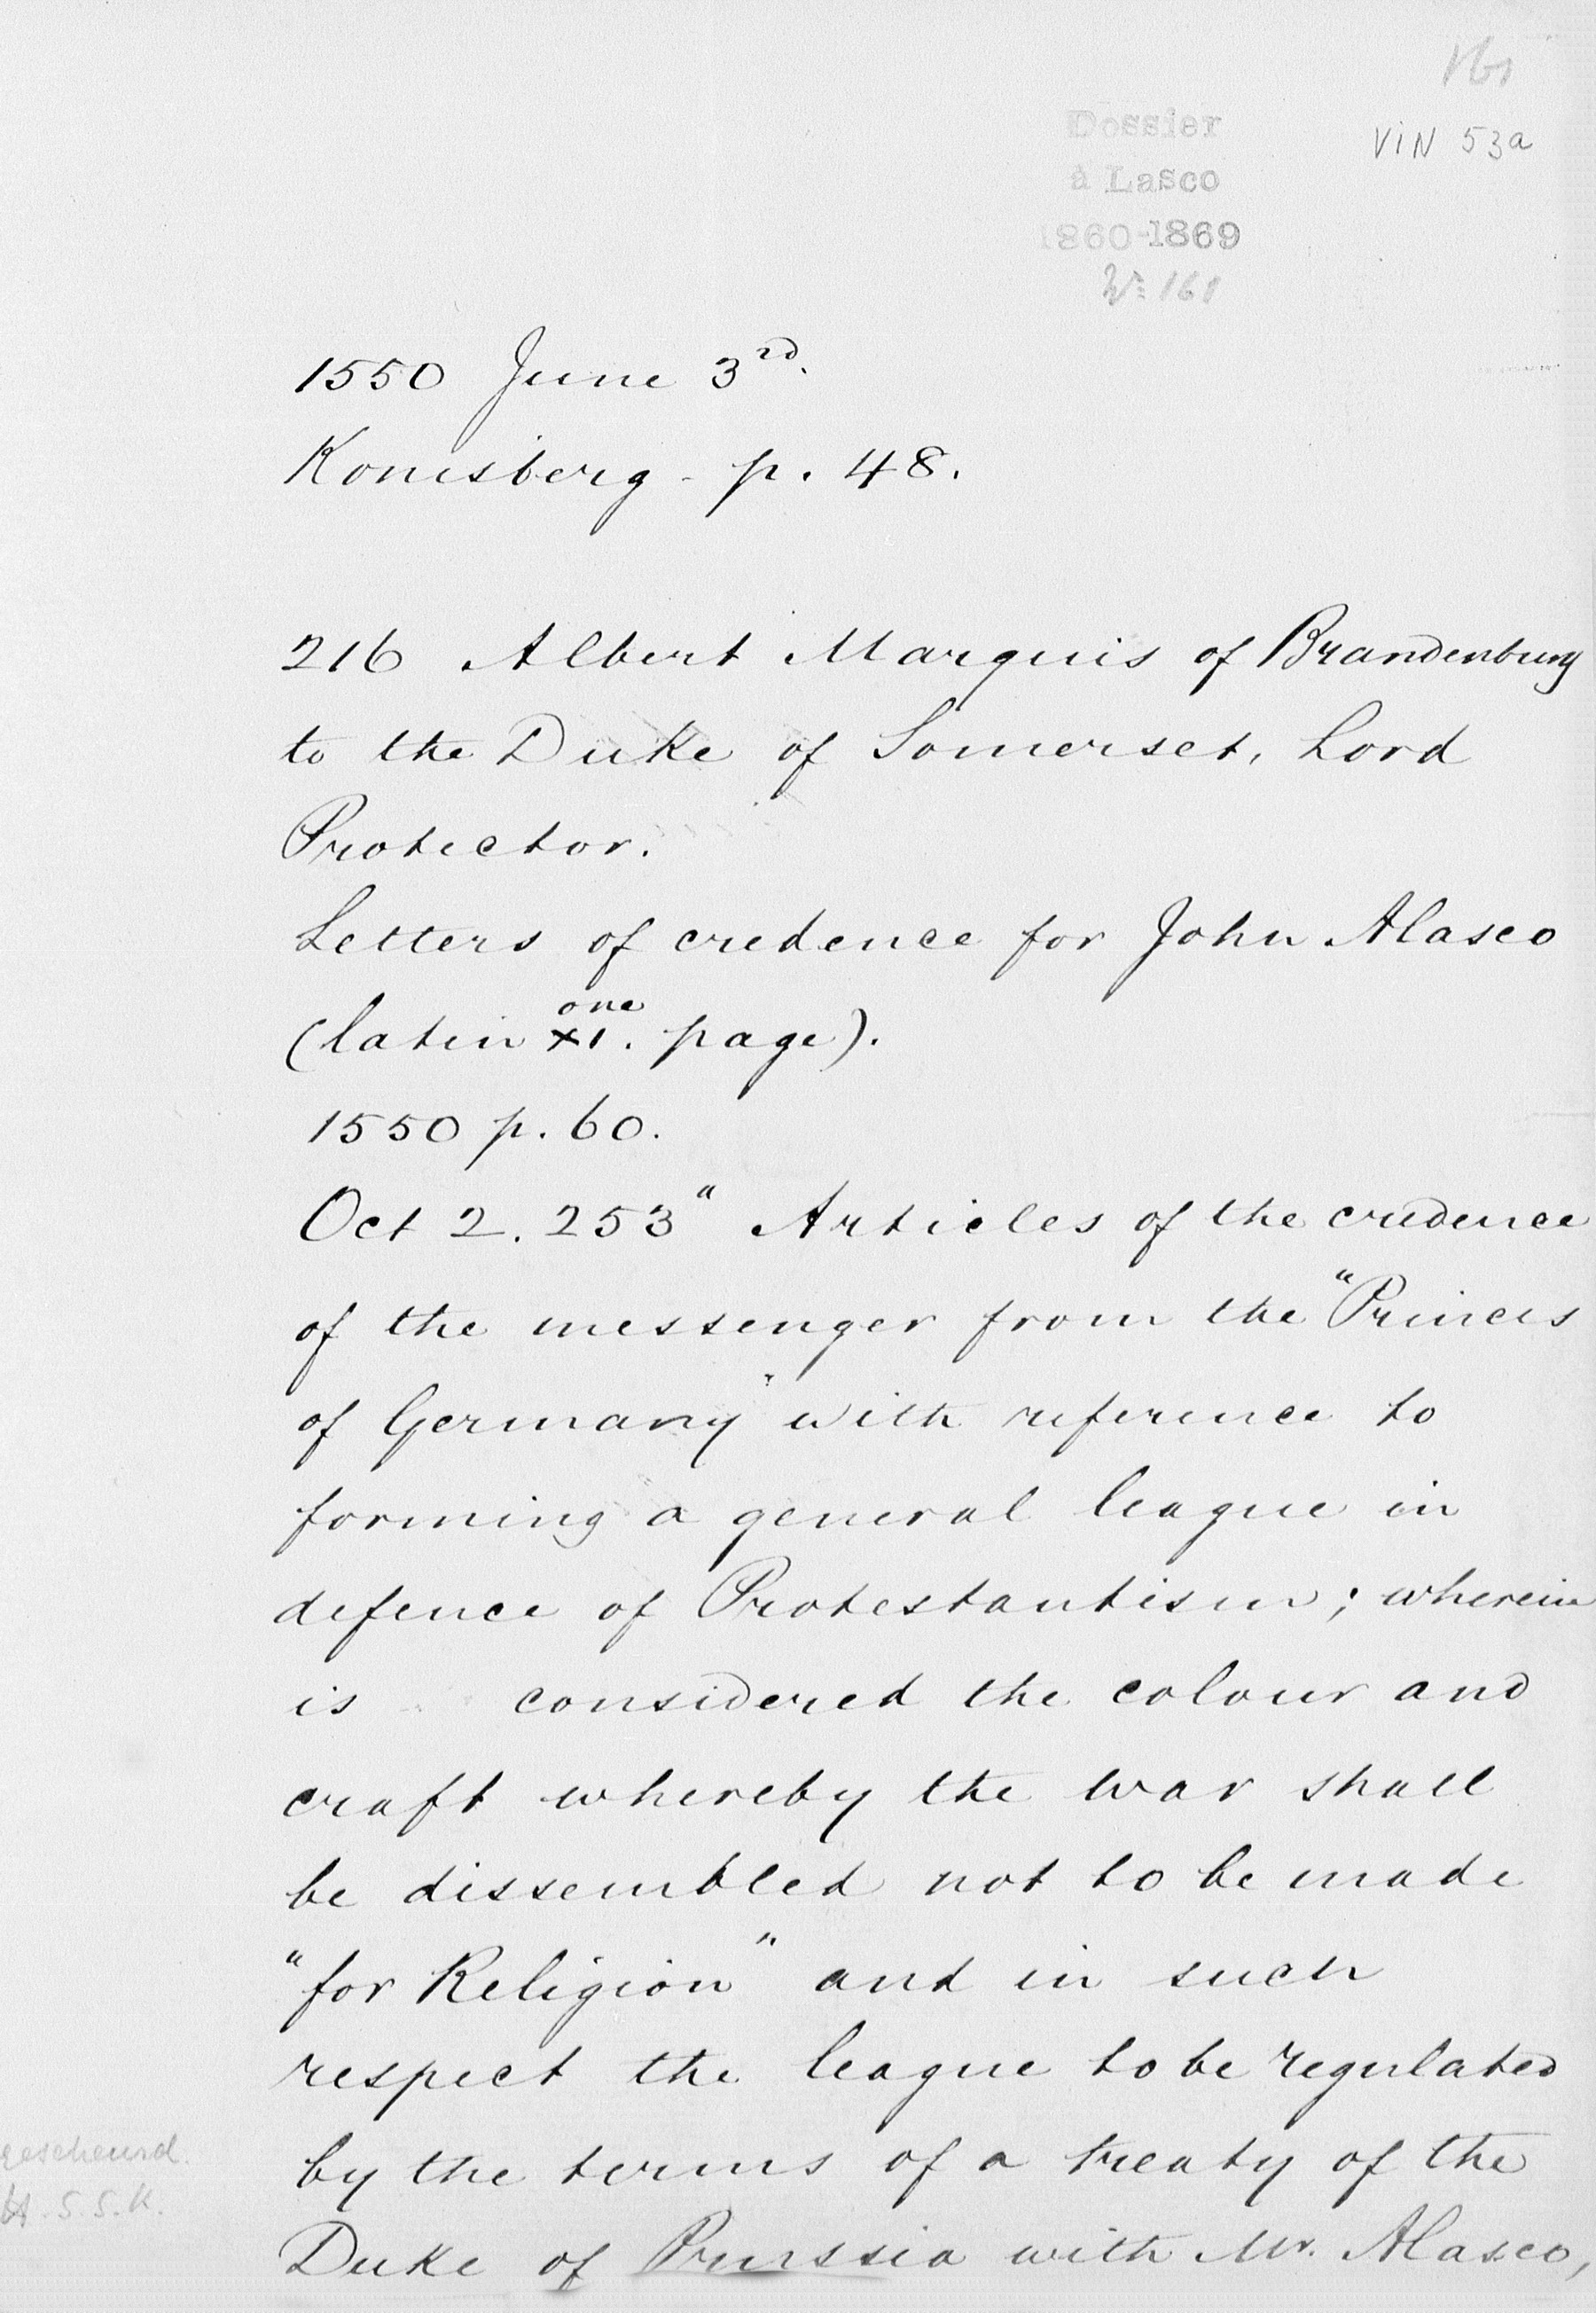 161
Dossier
à Lasco
1860-1869
No 161
VIN 53a
1550 June 3rd.
Konisberg - p. 48.
216 Albert Marquis of Brandenburg
to the Duke of Somerset, Lord
Protector.
Letters of credence for John Alasco
one
(latin x1. page).
1550 p. 60.
Oct 2. 253 " Articles of the credence
of the messenger from the "Princes
of Germany" with reference to
forming a general league in
defence of Protestantism; wherein
is considered the colour and
craft whereby the war shall
be dissembled not to be made
"for Religion" and in such
respect the league to be regulated
by the terms of a treaty of the
Duke of Prussia with Mr. Alasco,
gescheurd.
H.S.S.K.